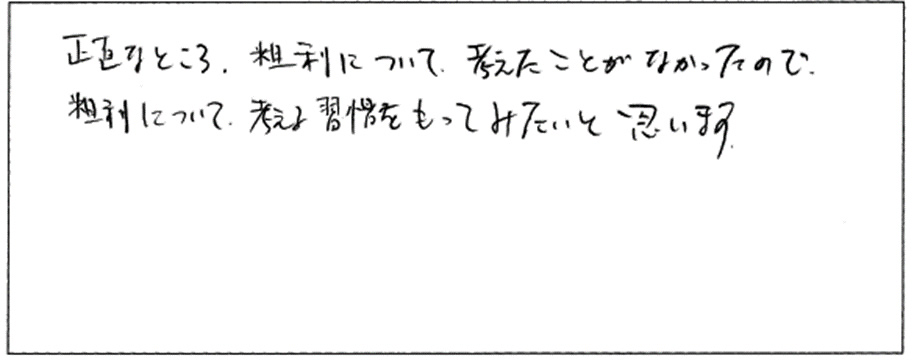 正直なところ、粗利について、考えたことがなかったので、
粗利について、考える習慣をもってみたいと思います。